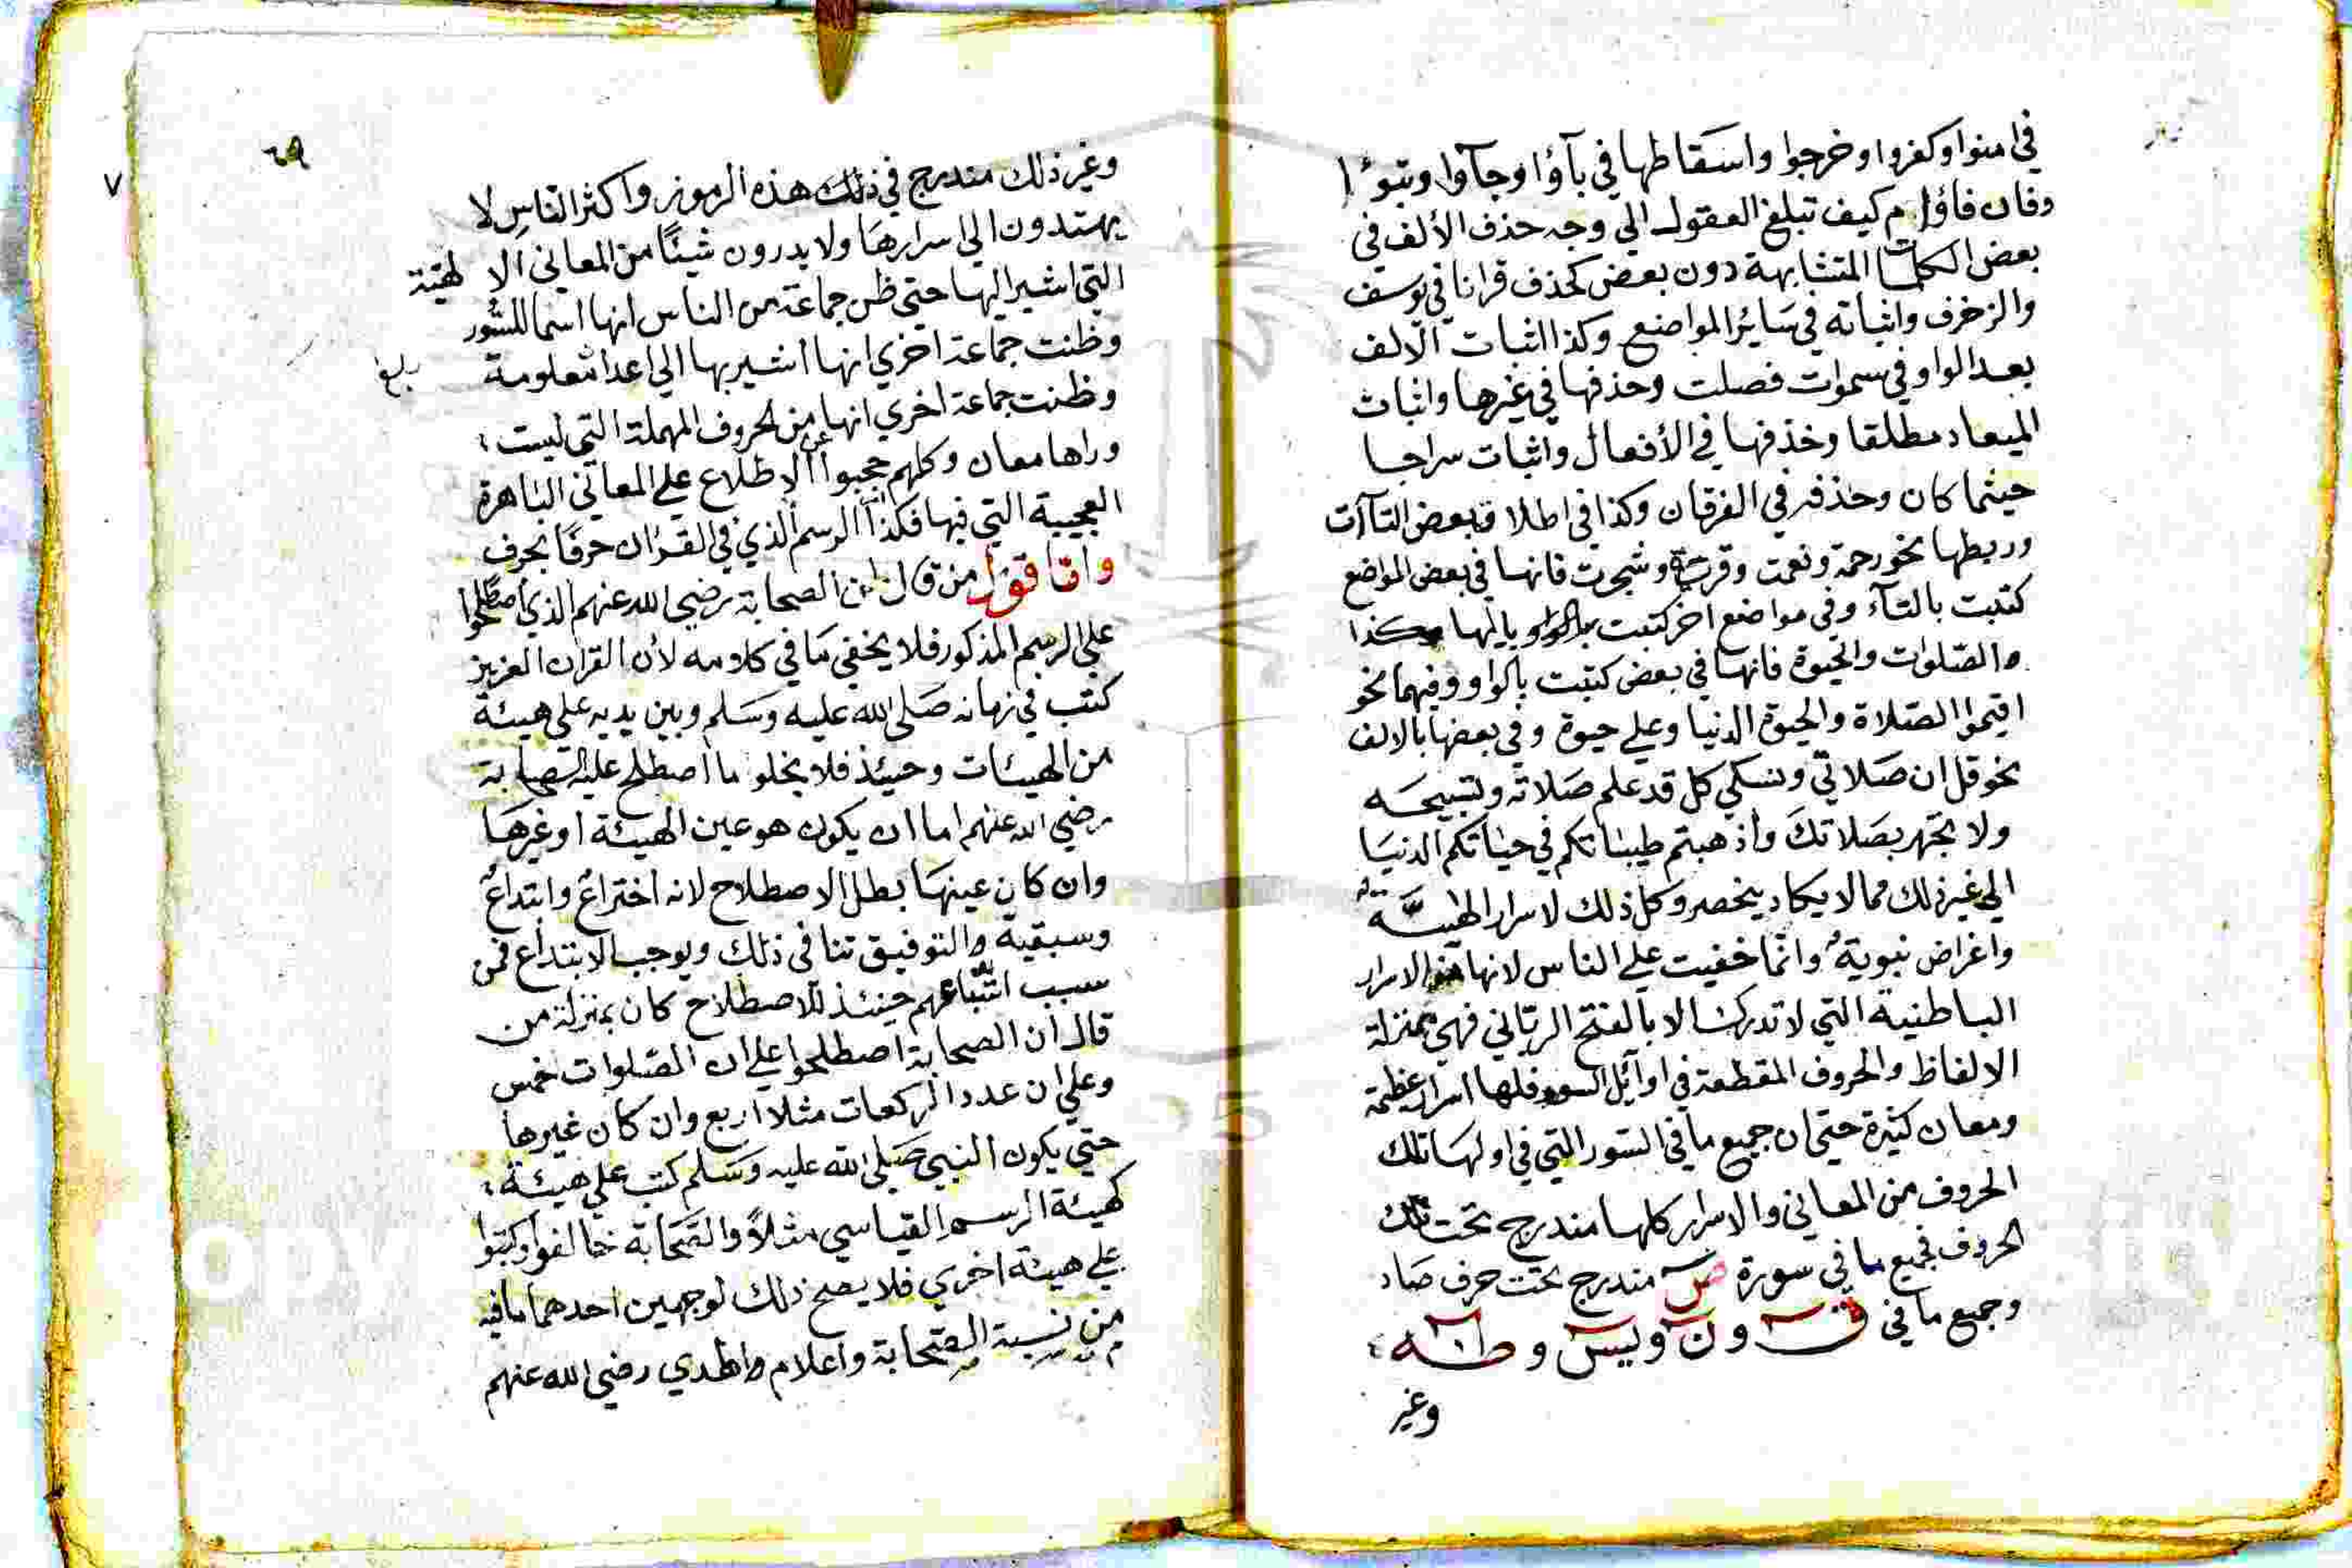 في امنوا وكفروا وخرجوا واسقاطها في باؤا وجاؤا وتبوؤا
وفان فاؤا م كيف تبلغ العقول الي وجه حذف الألف في
بعض الكلمات المتشابهة دون بعض كحذف قرانا في يوسف
والزخرف واثباته في سائر المواضع وكذا اثبات الالف
بعد الواو في سموات فصلت وحذفها في غيرها واثبات
الميعاد مطلقا وخذفها في الأفعال واثبات سراجا
حيثما كان وحذفه في الفرقان وكذا في اطلاق بعض التاآت
وربطها نحو رحمة ونعمت وقرة وشجرت فانها في بعض المواضع
كتبت بالتآء وفي مواضع اخر كتبت بالها وكذا
والصلوات والحيوة فانها في بعض كتبت بالواو وفيهما نحو
اقيموا الصلاة والحيوة الدنيا وعلي حيوة وفي بعضها بالالف
نحو قل ان صلاتي ونسكي كل قد علم صلاته وتسبيحه
ولا تجهر بصلاتك واذهبتم طيباتكم في حياتكم الدنيا
الي غير ذلك مما لا يكاد ينحصر وكل ذلك لاسرار الهية
واغراض نبوية وانما خفيت علي الناس لانها من الاسرار
الباطنية التي لا تدرك الا بالفتح الرباني فهي بمنزلة
الالفاظ والحروف المقطعة في اوآئل السور فلها اسرار عظيمة
ومعان كثيرة حتي ان جميع ما في السور التي في اولها تلك
الحروف من المعاني والاسرار كلها مندرج تحت تلك
الحروف فجميع ما في سورة ص مندرج تحت حرف صاد
وجميع ما في ق و ن و يس و طه
وغير
٦٩
٧
وغير ذلك مندرج في ذلك هذه الرموز واكثر الناس لا
يهتدون الي اسرارها ولا يدرون شيئا من المعاني الالهية
التي اشير اليها حتي ظن جماعة من الناس انها اسما للسور
وظنت جماعة اخري انها اشير بها الي اعداد معلومة
وظنت جماعة اخري انها من الحروف المهملة التي ليست
وراها معان وكلهم حجبوا عن الاطلاع علي المعاني الباهرة
العجيبة التي فيها فكذا الرسم الذي في القران حرفا بحرف
واما قول من قال ان الصحابة رضي الله عنهم الذي اصطلحوا
علي الرسم المذكور فلا يخفي ما في كلامه لأن القران العزيز
كتب في زمانه صلي الله عليه وسلم وبين يديه علي هيئة
من الهيئات وحيئذ فلا يخلو ما اصطلح عليه الصحابة
رضي الله عنهم اما ان يكون هو عين الهيئة اوغيرها
وان كان عينها بطل الاصطلاح لانه اختراع وابتداع
وسبقية والتوفيق تنافي ذلك ويوجب الابتداع فمن
سبب اتباعهم حينئذ للاصطلاح كان بمنزلة من
قال ان الصحابة اصطلحوا علي ان الصلوات خمس
وعلي ان عدد الركعات مثلا اربع وان كان غيرها
حتي يكون النبي صلي الله عليه وسلم كتب علي هيئة
كهيئة الرسم القياسي مثلاً والصحابة خالفوا وكتبوا
علي هيئة اخري فلا يصح ذلك لوجهين احدهما ما فيه
من نسبة الصحابة واعلام الهدي رضي الله عنهم